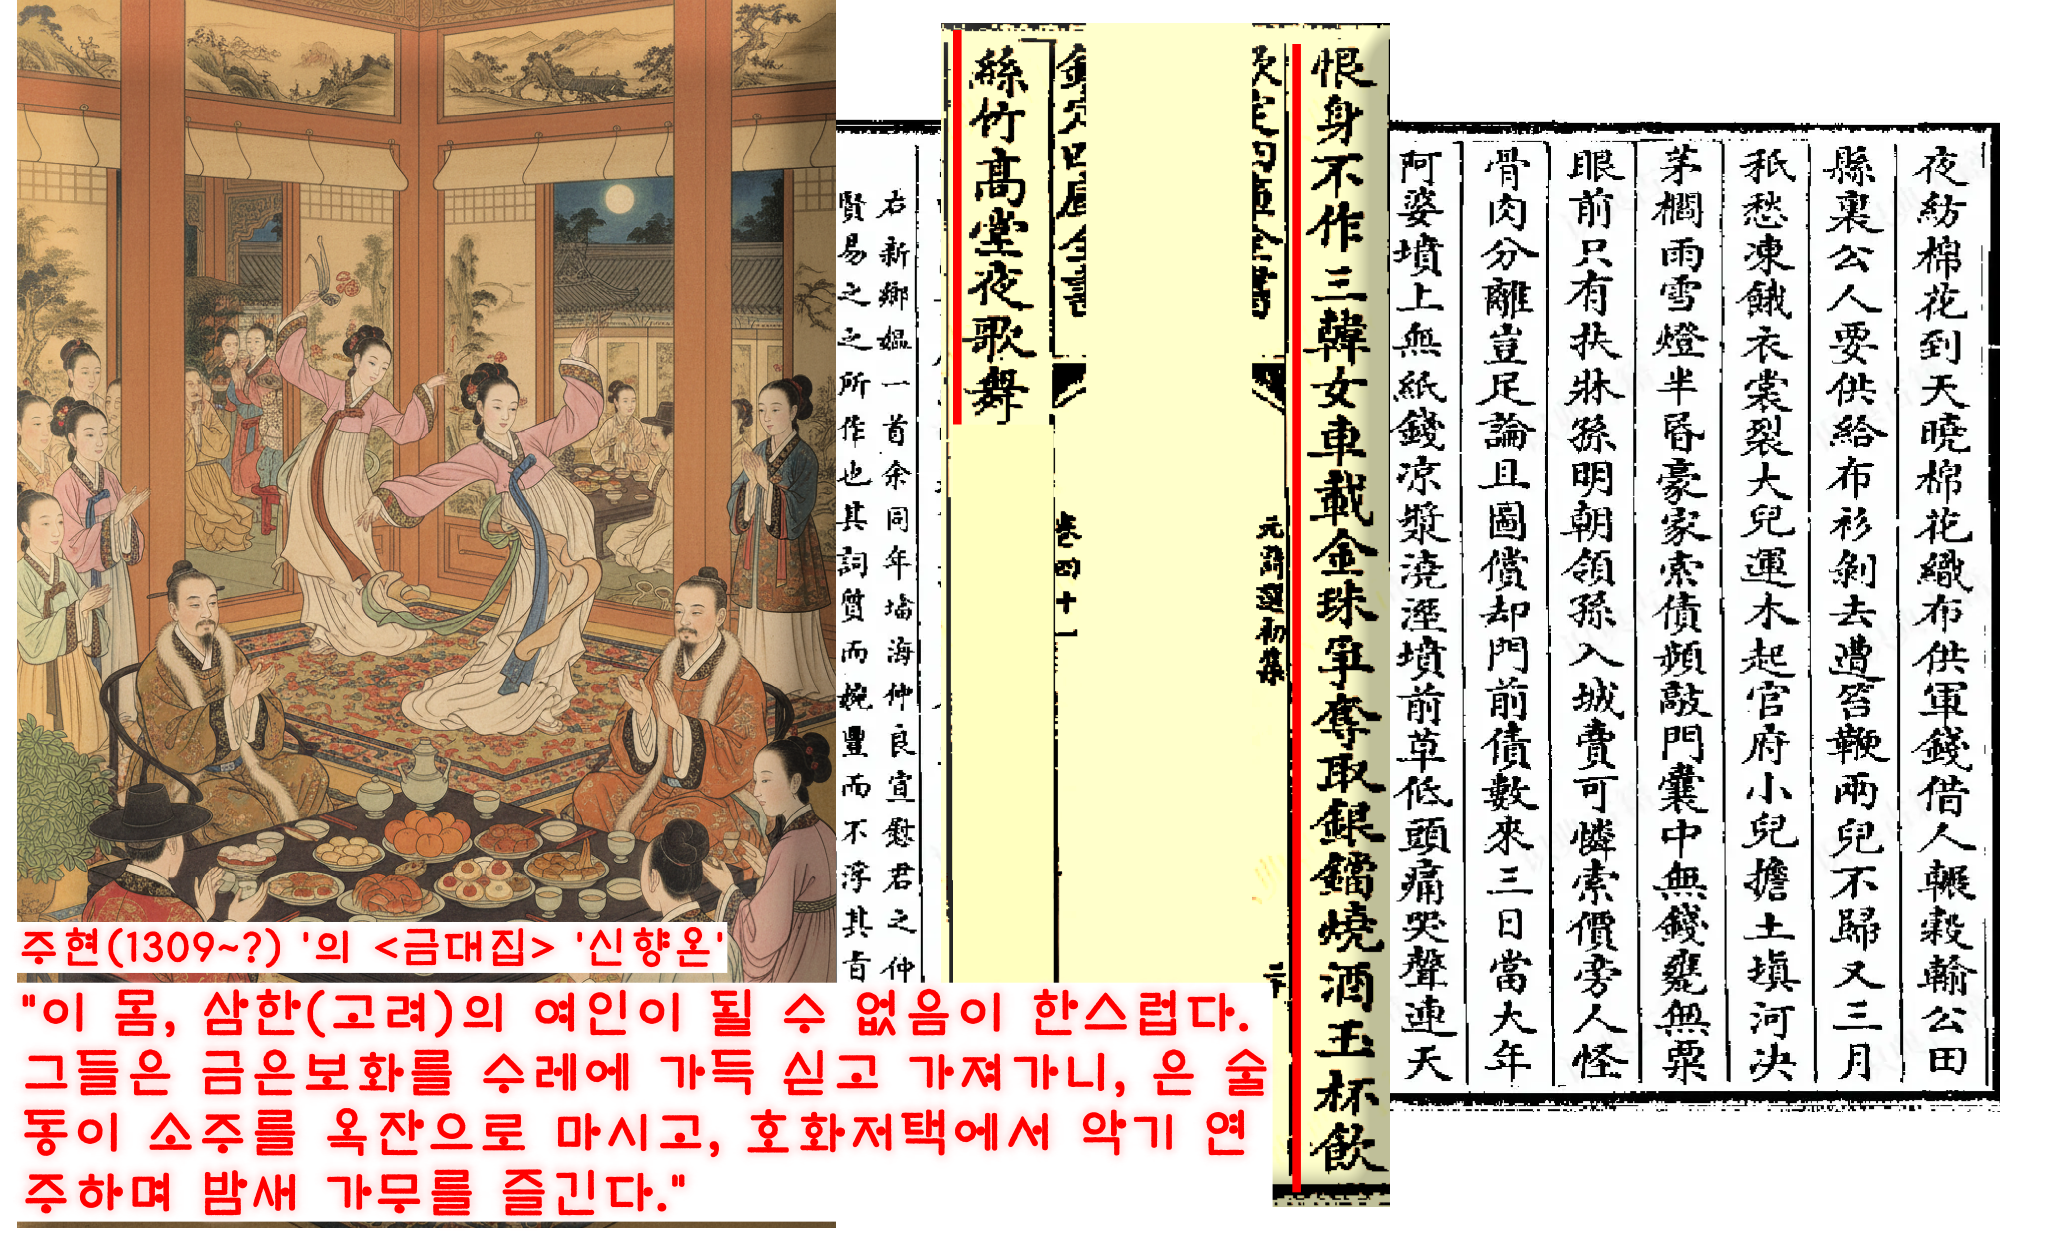 夜紡棉花到天曉棉花織布供軍錢借人輾穀輸公田
縣裏公人要供給布衫剝去遭笞鞭兩兒不歸又三月
秖愁凍餓衣裳裂大兒運木起官府小兒擔土塡河决
茅櫩雨雪燈半昏豪家索債頻敲門囊中無錢甕無粟
眼前只有扶牀孫明朝領孫入城賣可憐索價旁人怪
骨肉分離豈足論且圖償却門前債數來三日當大年
阿婆墳上無紙錢凉漿澆溼墳前草低頭痛哭聲連天
恨身不作三韓女車載金珠爭奪取銀鐺燒酒玉杯飲
欽定四庫全書
元詩選初集
欽定四庫全書
卷四十一
絲竹高堂夜歌舞
右新鄉媼一首余同年塔海仲良宣慰君之仲
賢易之之所作也其詞質而婉豐而不浮其旨
주현(1309~?) '의 <금대집> '신향온'
"이 몸, 삼한(고려)의 여인이 될 수 없음이 한스럽다.
그들은 금은보화를 수레에 가득 싣고 가져가니, 은 술
동이 소주를 옥잔으로 마시고, 호화저택에서 악기 연
주하며 밤새 가무를 즐긴다."